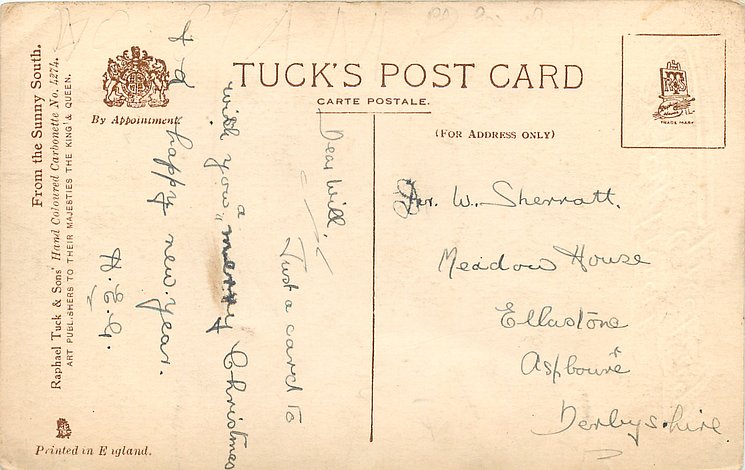 TUCK'S POST CARD
CARTE POSTALE.
By Appointment.
(FOR ADDRESS ONLY)
TRADE MARK
From the Sunny South.
Raphael Tuck & Sons' Hand Coloured Carbonette No. 4274.
ART PUBLISHERS TO THEIR MAJESTIES THE KING & QUEEN.
Printed in England.
Dear Will,
Just a card to
wish you "a merry Christmas
& a happy new year.
H. E. G.
W. Sherratt.
Meadow House
Ellastone
Ashbourne
Derbyshire